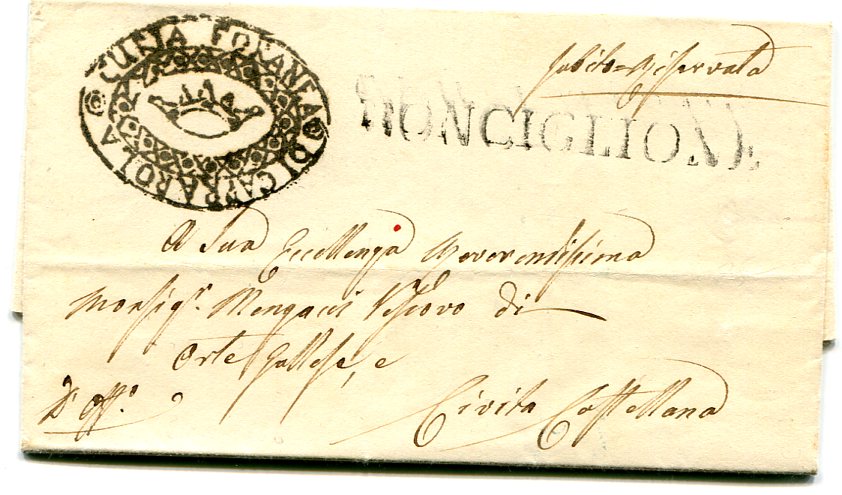 CURIA FORANEA DI CAPRAROLA
RONCIGLIONE
subito = Riservata
A Sua Eccellenza Reverendissima
Monsig.r Mengacci Vescovo di
Orte Gallese, e
Civita Castellana
D'Off.o